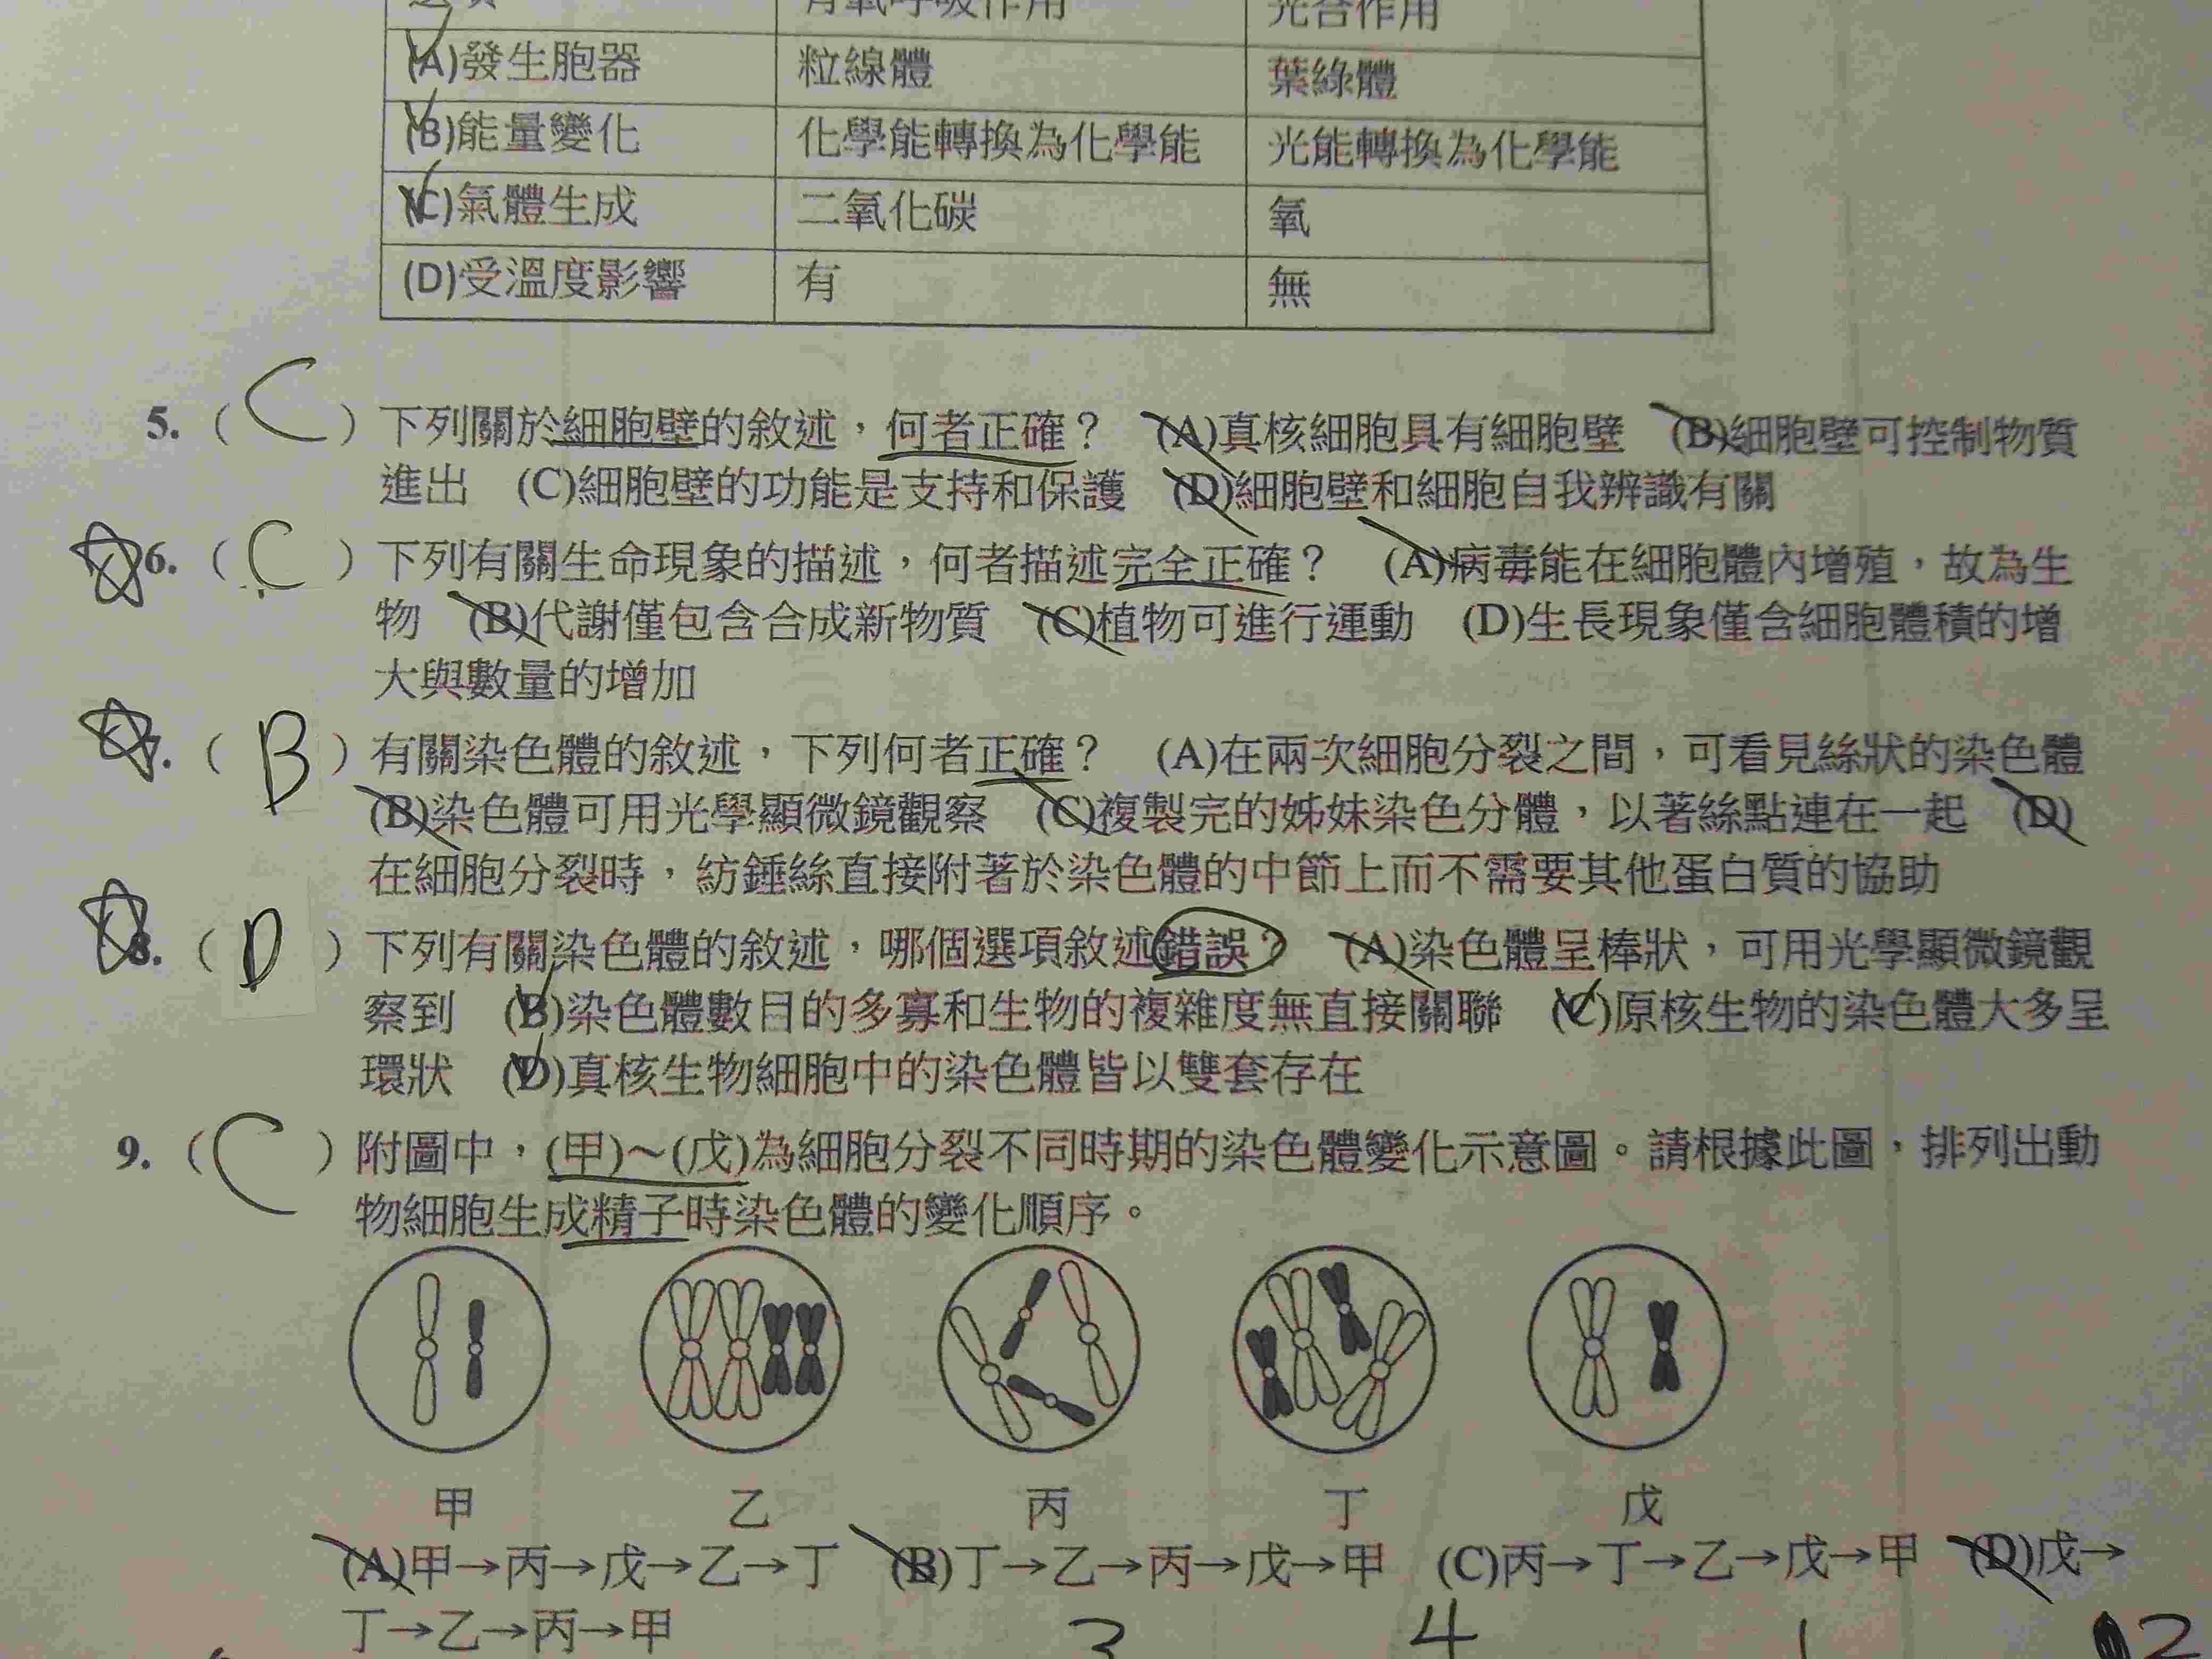 選項 有氧呼吸作用 光合作用
(A)發生胞器 粒線體 葉綠體
(B)能量變化 化學能轉換為化學能 光能轉換為化學能
(C)氣體生成 二氧化碳 氧
(D)受溫度影響 有 無
5. ( C ) 下列關於細胞壁的敘述，何者正確？ (A)真核細胞具有細胞壁 (B)細胞壁可控制物質
進出 (C)細胞壁的功能是支持和保護 (D)細胞壁和細胞自我辨識有關
6. ( C ) 下列有關生命現象的描述，何者描述完全正確？ (A)病毒能在細胞體內增殖，故為生
物 (B)代謝僅包含合成新物質 (C)植物可進行運動 (D)生長現象僅含細胞體積的增
大與數量的增加
7. ( B ) 有關染色體的敘述，下列何者正確？ (A)在兩次細胞分裂之間，可看見絲狀的染色體
(B)染色體可用光學顯微鏡觀察 (C)複製完的姊妹染色分體，以著絲點連在一起 (D)
在細胞分裂時，紡錘絲直接附著於染色體的中節上而不需要其他蛋白質的協助
8. ( D ) 下列有關染色體的敘述，哪個選項敘述錯誤？ (A)染色體呈棒狀，可用光學顯微鏡觀
察到 (B)染色體數目的多寡和生物的複雜度無直接關聯 (C)原核生物的染色體大多呈
環狀 (D)真核生物細胞中的染色體皆以雙套存在
9. ( C ) 附圖中，(甲)~(戊)為細胞分裂不同時期的染色體變化示意圖。請根據此圖，排列出動
物細胞生成精子時染色體的變化順序。
甲 乙 丙 丁 戊
(A)甲→丙→戊→乙→丁 (B)丁→乙→丙→戊→甲 (C)丙→丁→乙→戊→甲 (D)戊→
丁→乙→丙→甲
3 4 1 2